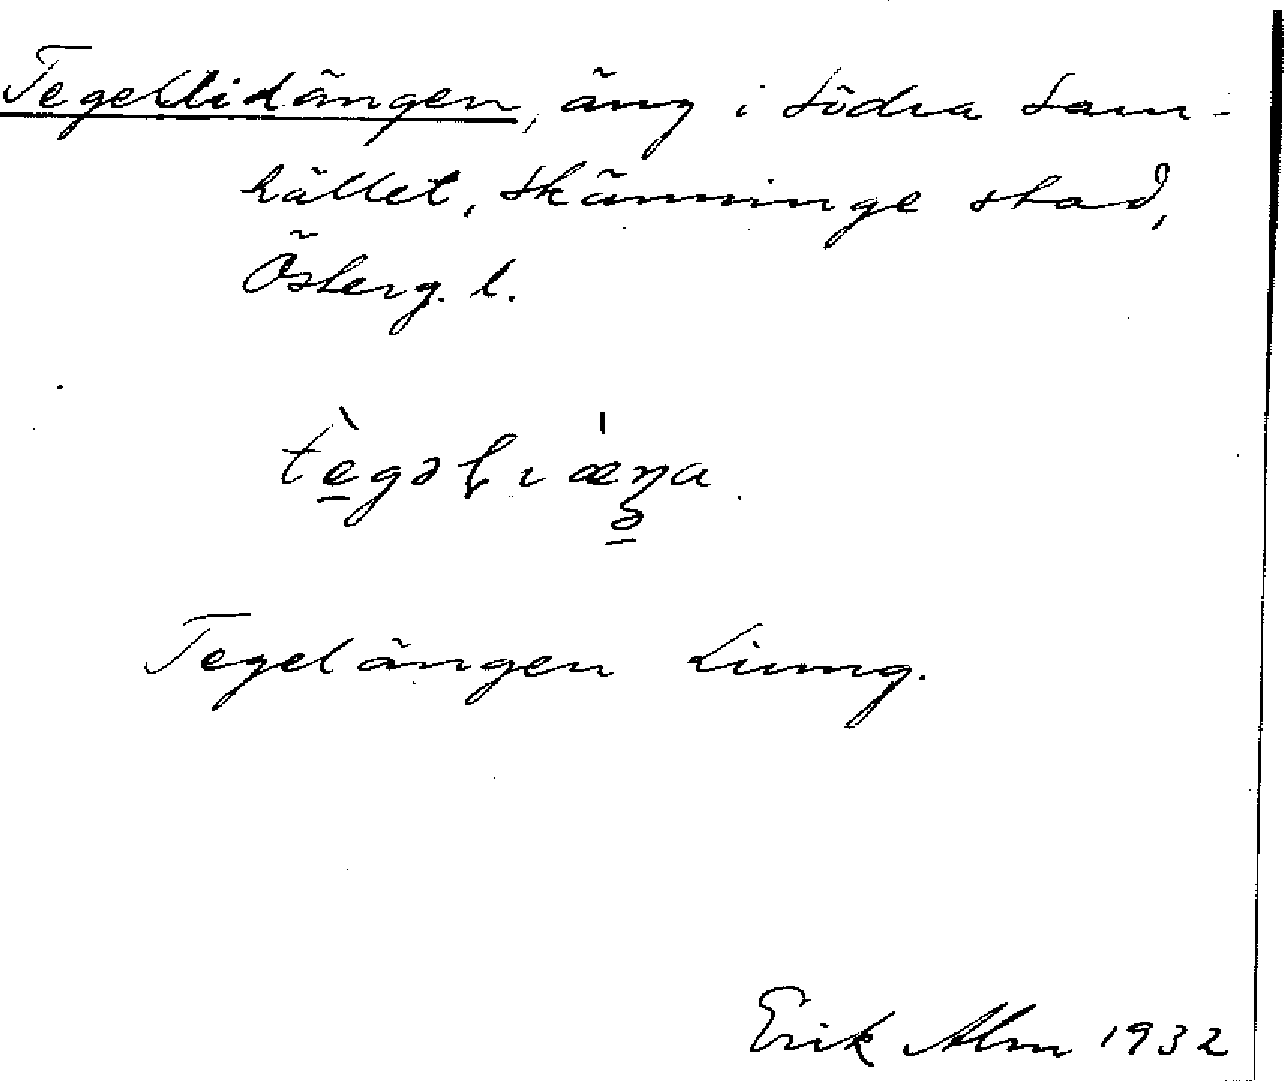 Tegellidängen, äng i södra sam-
hället, Skänninge stad,
Österg. l.
Tegelängen Liung.
Erik Alm 1932